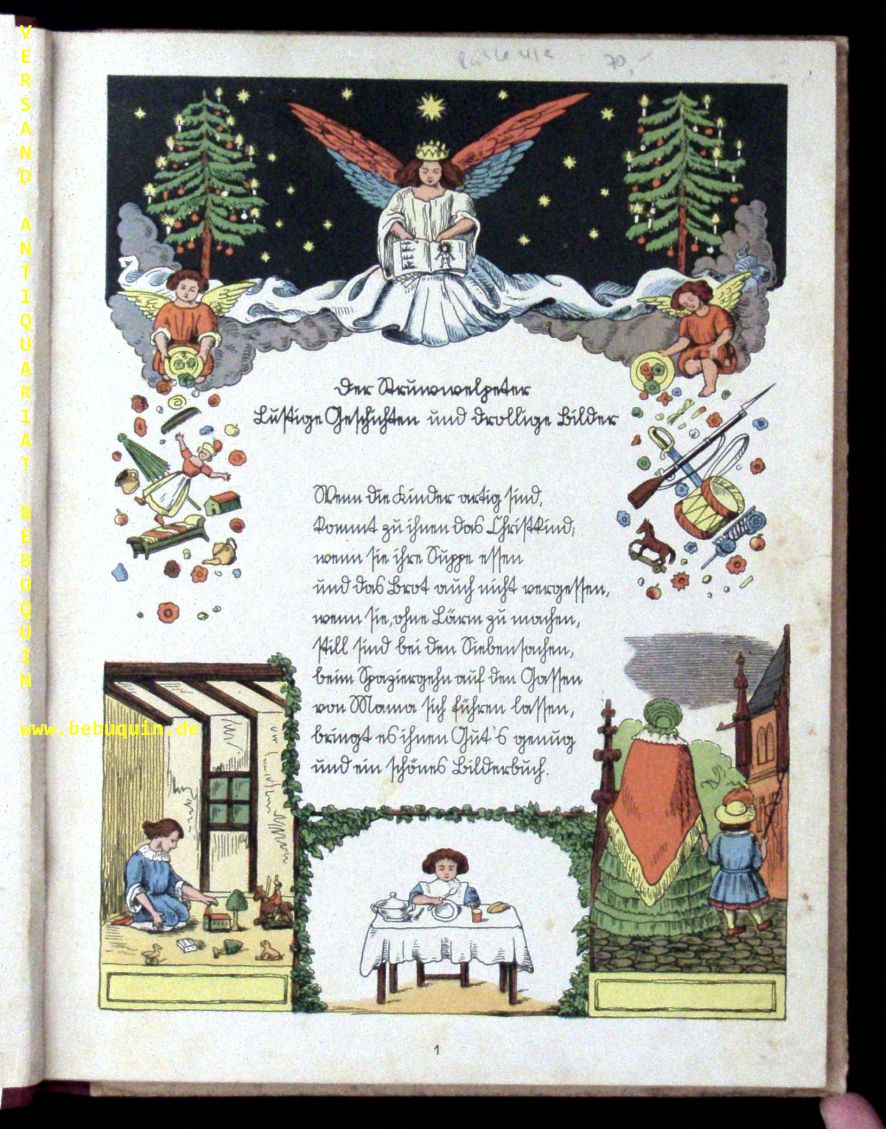 VERSAND ANTIQUARIAT BEBUQUIN
www.bebuquin.de
70,-
Der Struwwelpeter
Lustige Geschichten und drollige Bilder
Wenn die Kinder artig sind,
kommt zu ihnen das Christkind;
wenn sie ihre Suppe essen
und das Brot auch nicht vergessen,
wenn sie, ohne Lärm zu machen,
still sind bei den Siebensachen,
beim Spaziergehn auf den Gassen
von Mama sich führen lassen,
bringt es ihnen Gut's genug
und ein schönes Bilderbuch.
1